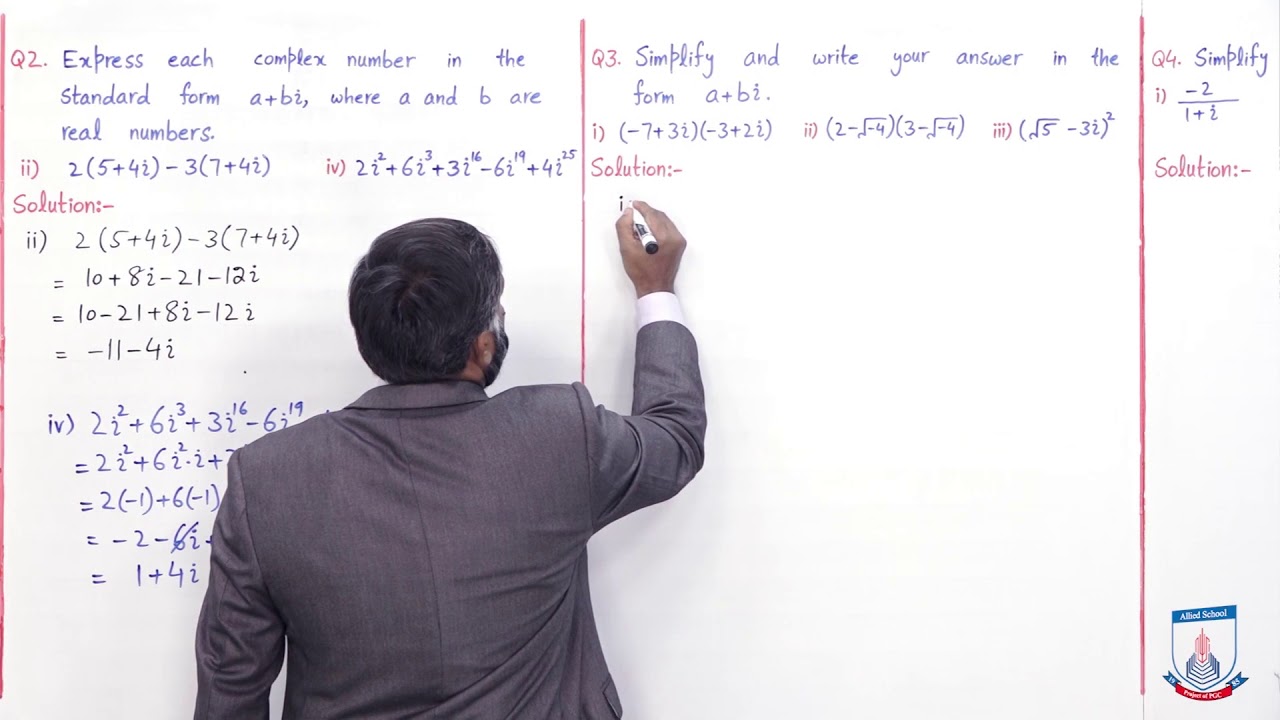 Q2. Express each complex number in the
standard form a+bi, where a and b are
real numbers.
ii) 2(5+4i)-3(7+4i) iv) 2i²+6i³+3i¹⁶-6i¹⁹+4i²⁵
Solution:-
ii) 2(5+4i)-3(7+4i)
= 10+8i-21-12i
= 10-21+8i-12i
= -11-4i
iv) 2i²+6i³+3i¹⁶-6i¹⁹
= 2i²+6i².i+
= 2(-1)+6(-1)
= -2-6i+
= 1+4i
Q3. Simplify and write your answer in the
form a+bi.
i) (-7+3i)(-3+2i) ii) (2-√-4)(3-√-4) iii) (√5-3i)²
Solution:-
i
Q4. Simplify
i) -2
1+i
Solution:-
Allied School
19 85
Project of PGC